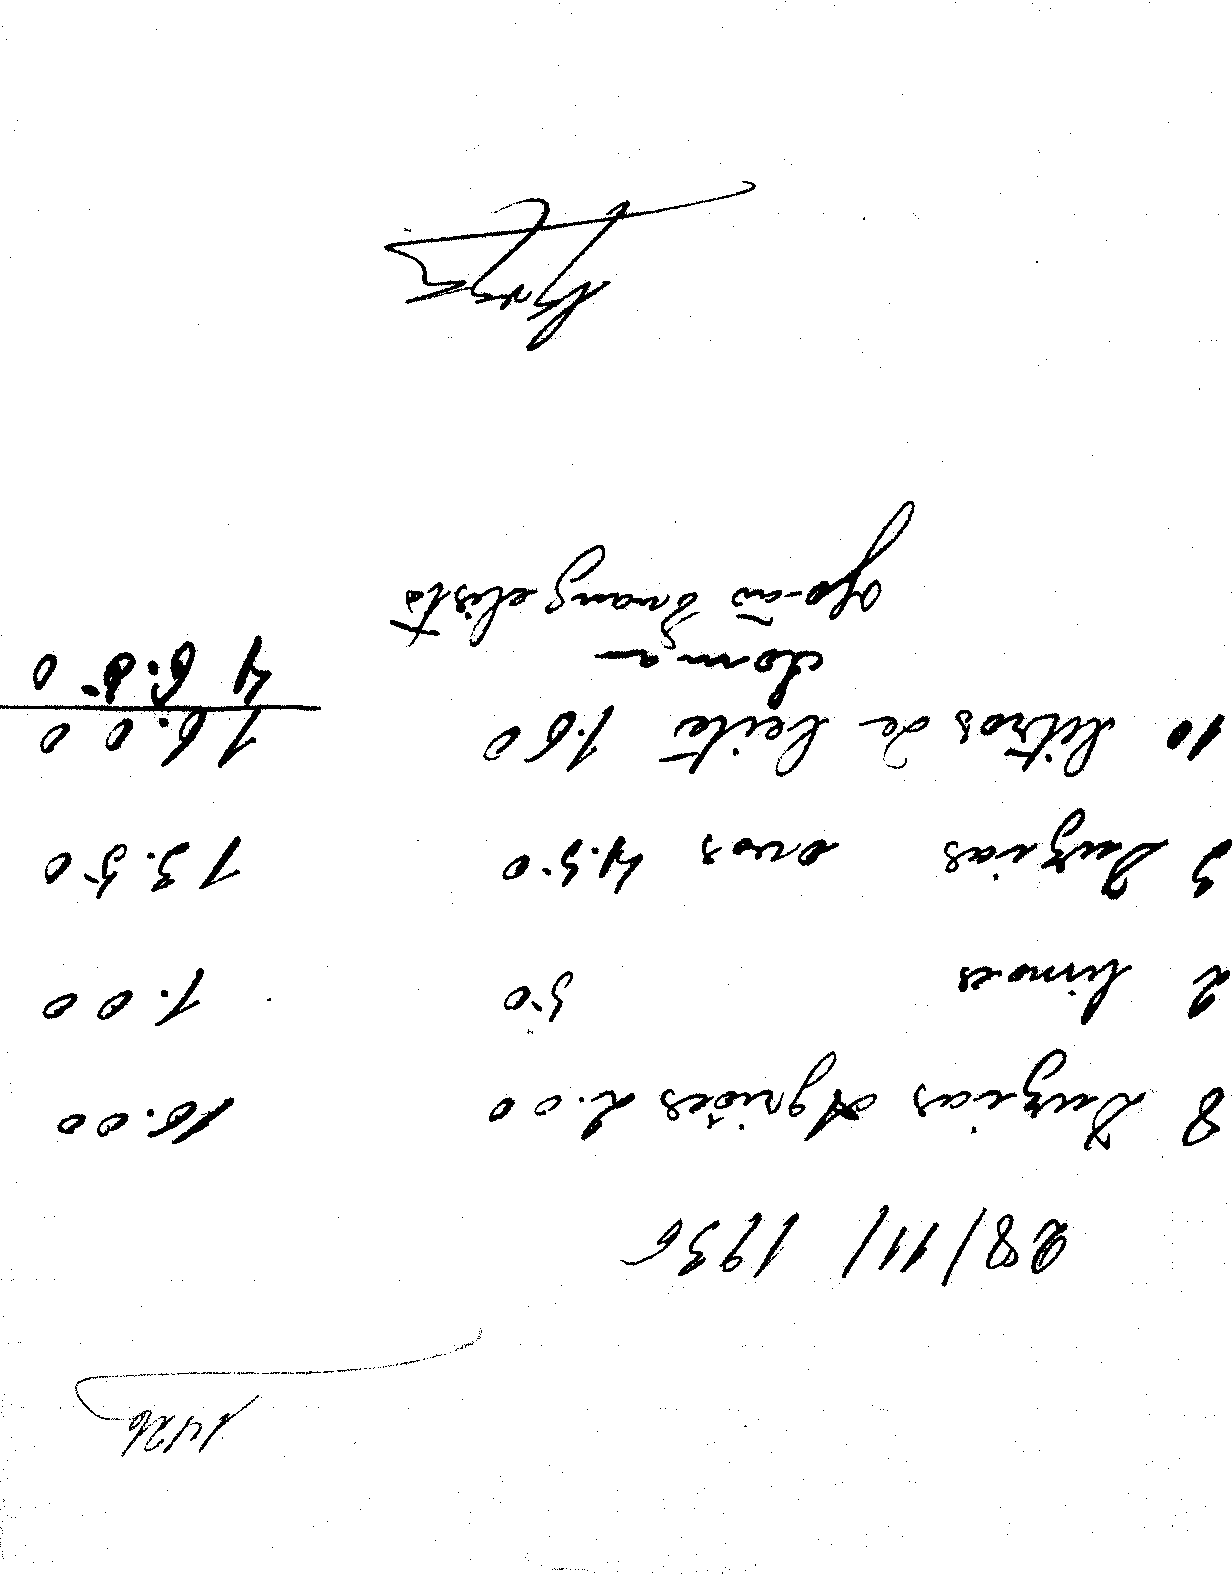 1426
28/11/1936
8 Duzias Agriões 2.00 16.00
2 limoes 50 1.00
3 Duzias ovos 4.50 13.50
10 litros de leite 1.60 16.00
soma 46.50
João Evangelista